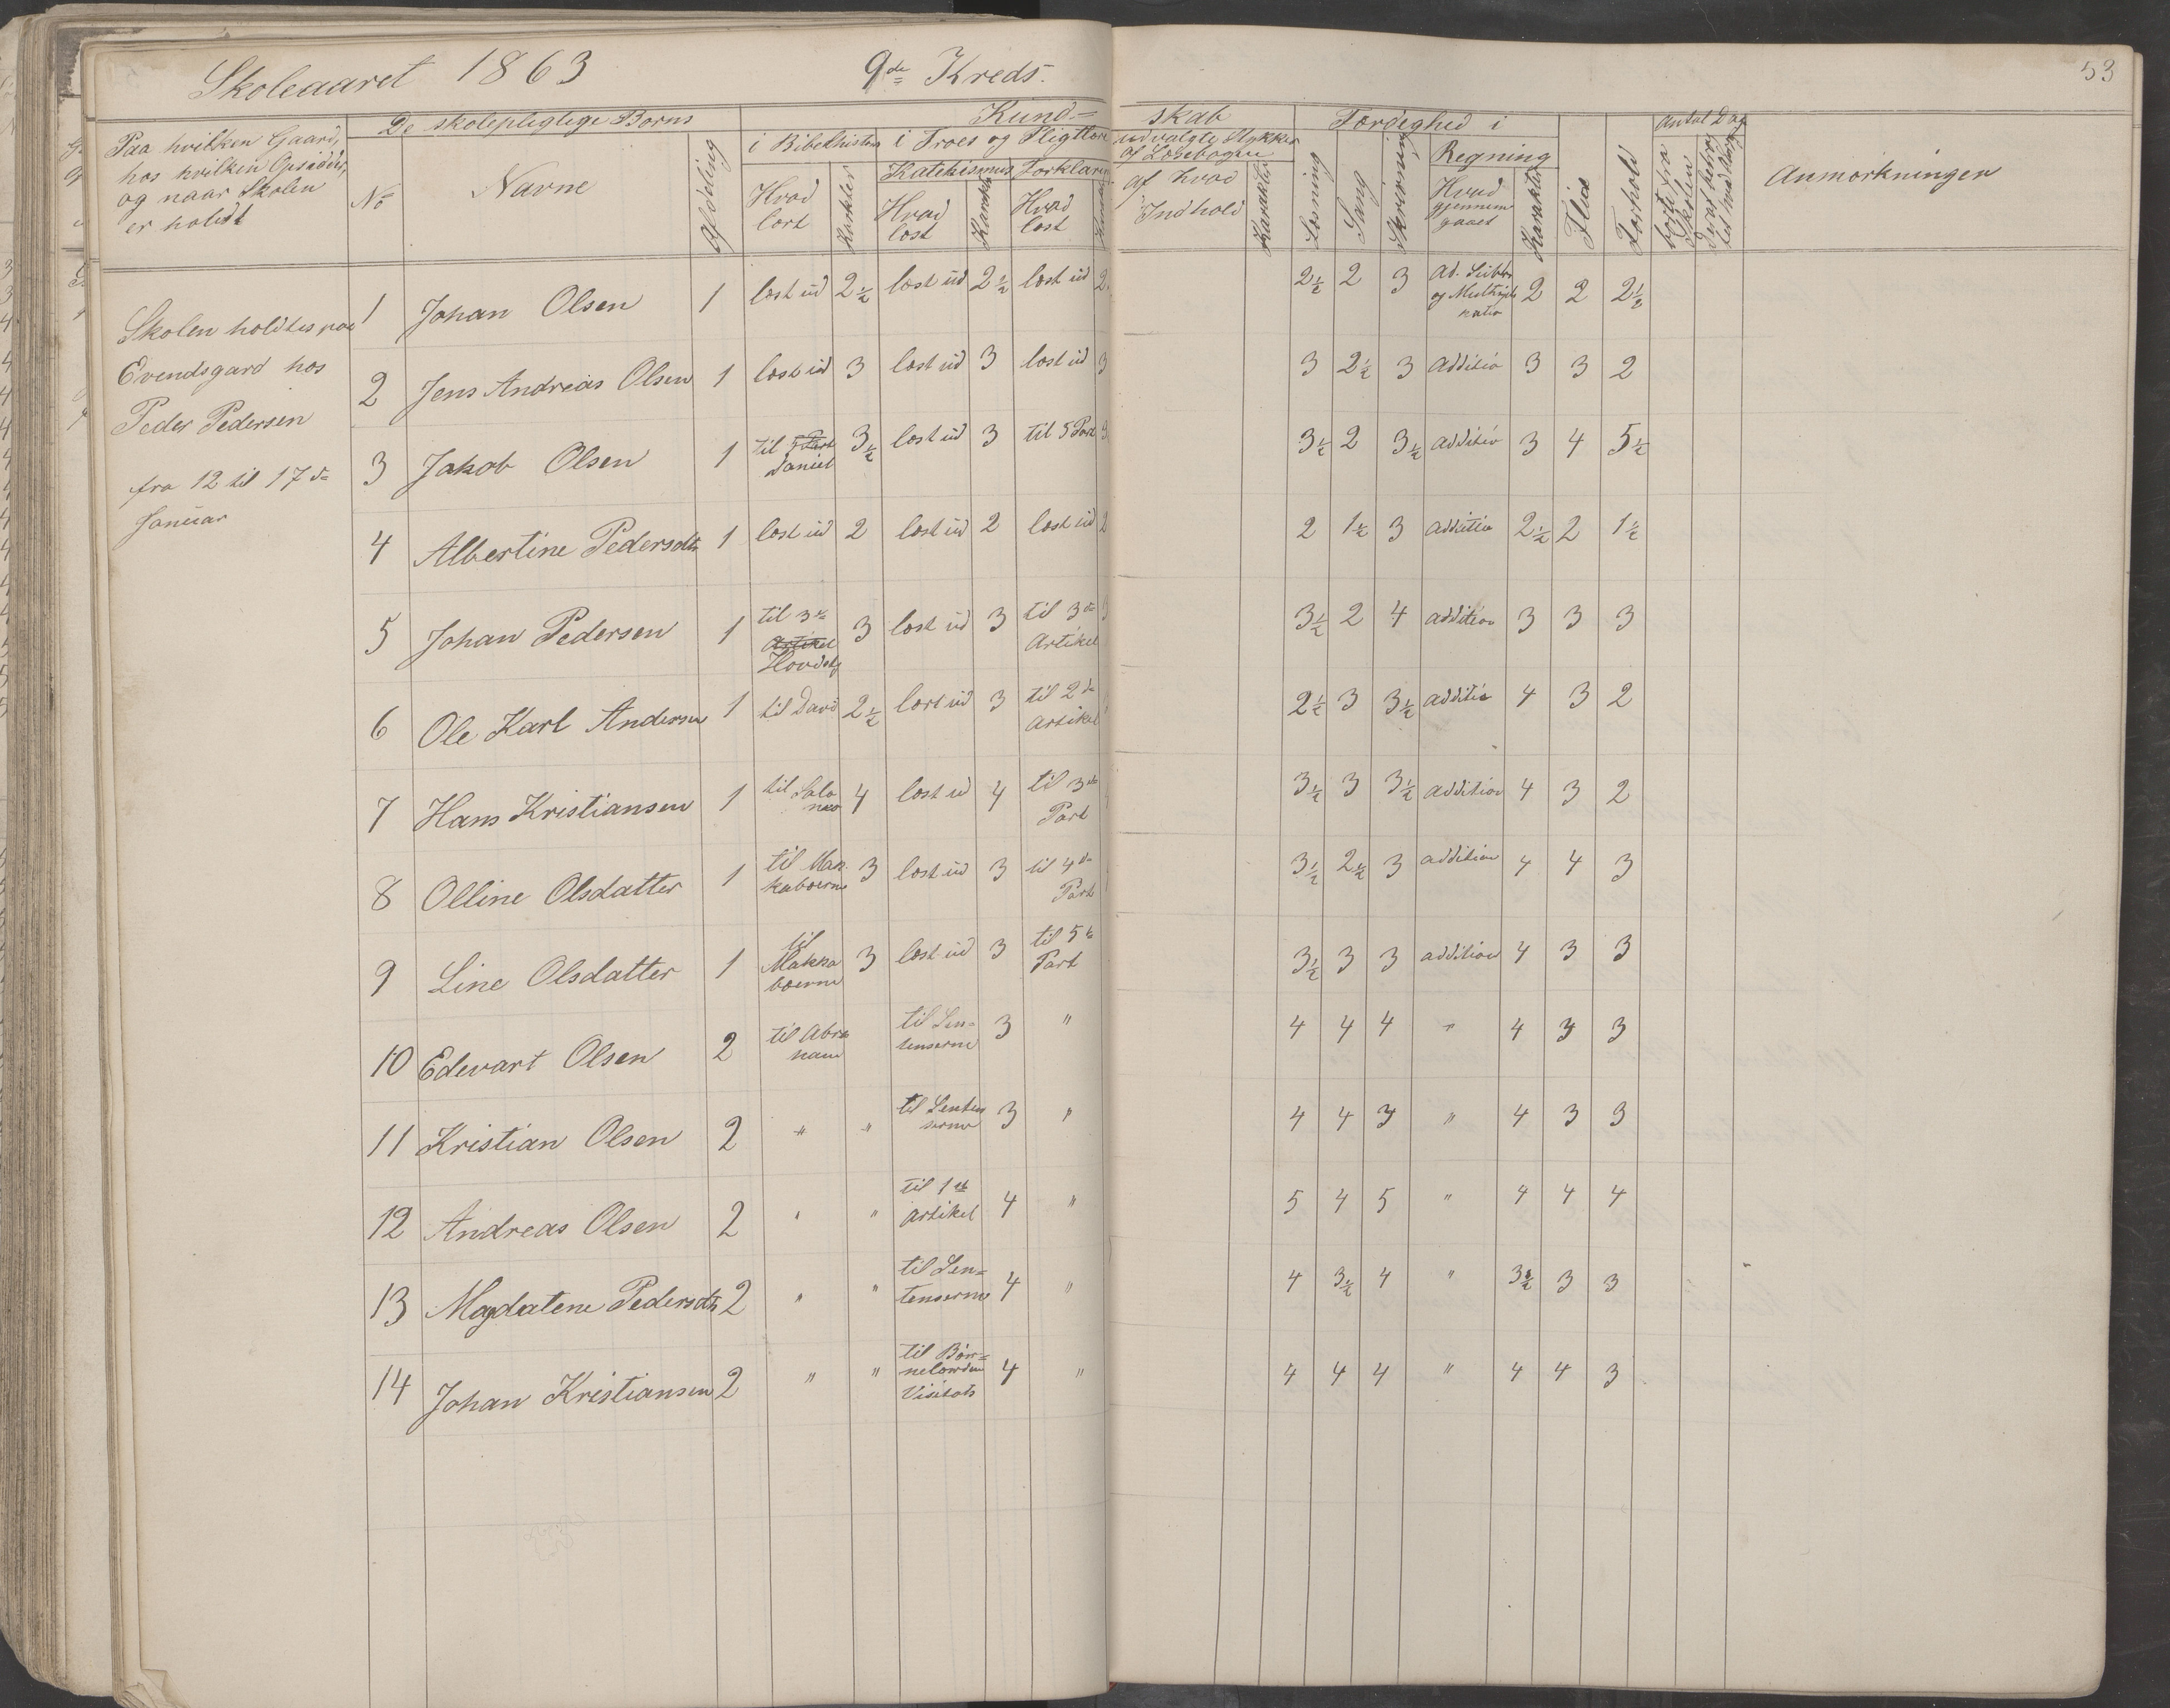 Skoleaaret 1863 9de Kreds.
53
Paa hvilken Gaard,
hos hvilken Opsidder,
og naar Skolen
er holdt
De skolepligtige Børns
No
Navne
Afdeling
Kund-
skab
i Bibelhistorie
Hvad lært
Karakter
i Troes og Pligtlære
Katekismus
Hvad læst
Karakter
Forklaring
Hvad læst
udvalgte Stykker
af Læsebogen
af hvad
Indhold
Karakter
Færdighed i
Læsning
Sang
Skrivning
Regning
Hvad
gjennem
gaaet
Karakter
Flid
Forhold
Antal Dage
borte fra
Skolen
Anmærkninger
Skolen holdtes paa
Evendsgard hos
Peder Pedersen
fra 12 til 17de
Januar
1 Johan Olsen 1 læst ud 2½ læst ud 2½ læst ud 2 2½ 2 3 Ad. Subtr og Multiplikatio 2 2 2½
2 Jens Andreas Olsen 1 læst ud 3 læst ud 3 læst ud 3 3 2½ 3 additio 3 3 2
3 Jakob Olsen 1 til Daniel 3½ læst ud 3 til 5 Part 3 3½ 2 3½ additio 3 4 5½
4 Albertine Pedersdtr 1 læst ud 2 læst ud 2 læst ud 2 2 1½ 3 additio 2½ 2 1½
5 Johan Pedersen 1 til 3de Artikel Hovdstk 3 læst ud 3 til 3de Artikel 3 3½ 2 4 addition 3 3 3
6 Ole Karl Andersen 1 til David 2½ lært ud 3 til 2de Artikel 2½ 3 3½ additio 4 3 2
7 Hans Kristiansen 1 til Salomo 4 læst ud 4 til 3de Part 3½ 3 3½ addition 4 3 2
8 Olline Olsdatter 1 til Makkabæerne 3 læst ud 3 til 4de Part 3½ 2½ 3 addition 4 4 3
9 Line Olsdatter 1 til Makkabæerne 3 læst ud 3 til 5te Part 3½ 3 3 addition 4 3 3
10 Edevart Olsen 2 til Abraham til Sentenserne 3 " 4 4 4 " 4 3 3
11 Kristian Olsen 2 " " til Sentenserne 3 " 4 4 3 " 4 3 3
12 Andreas Olsen 2 " " til 1ste Artikel 4 " 5 4 5 " 4 4 4
13 Magdalene Pedersdtr 2 " " til Sentenserne 4 " 4 3½ 4 " 3½ 3 3
14 Johan Kristiansen 2 " " til Børnelærdom Visitats 4 " 4 4 4 " 4 4 3